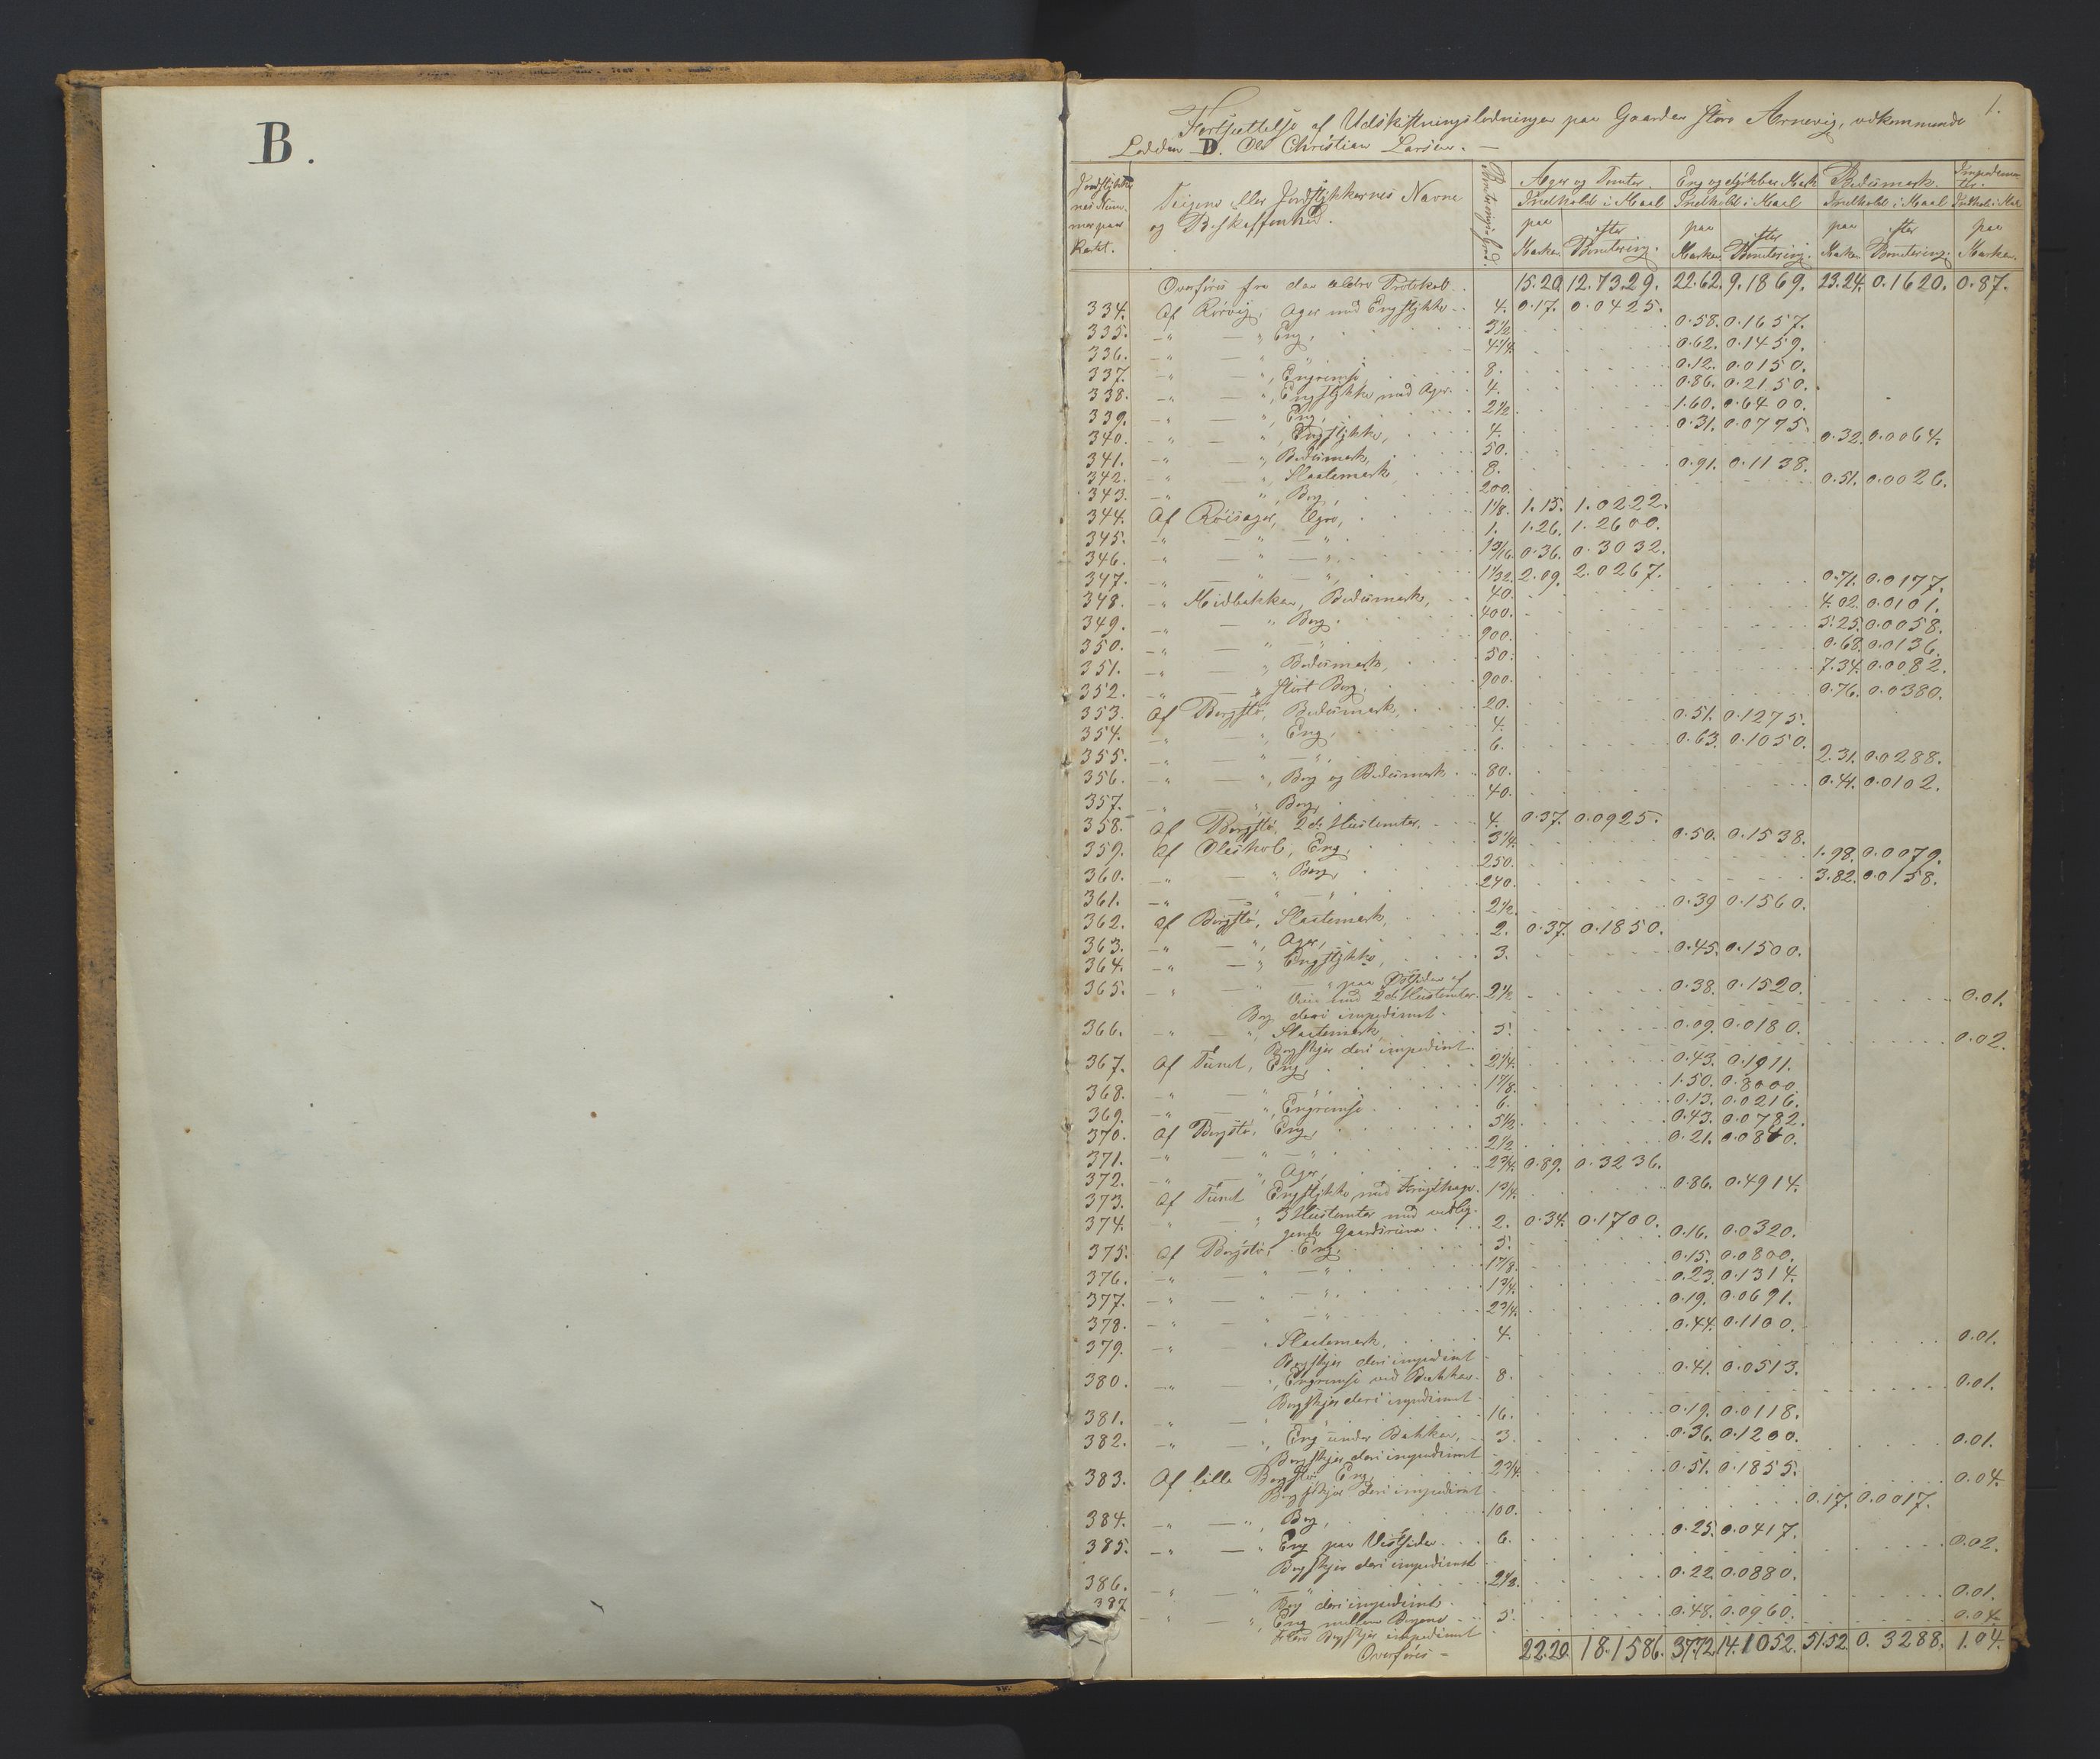 B.
1.
Fortsættelse af Udskiftningslodningen paa Gaarden store Arnevig, vedkommende
Lodden D. Ole Christian Larsen. —
Jordstykkernes Nummer paa Kartet. Teigens eller Jordstykkernes Navne og Beskaffenhed. Boniterings-Grad. Ager og Tomter. Eng og dyrkbar Mark Bedesmark. Impedimenter.
Indhold i Maal Indhold i Maal Indhold i Maal Indhold i Maal
paa Marken. efter Bonitering. paa Marken. efter Bonitering. paa Marken. efter Bonitering. paa Marken.
Overføres fra den ældre Protokol. 15.20. 12.7329. 22.62. 9.1869. 23.24. 0.1620. 0.87.
334. Af Rørvig, Ager med Engstykke 4. 0.17. 0.0425.
335. —„ — „ Eng, 3½ 0.58. 0.1657.
336. —„ — „ — „ 4¼. 0.62. 0.1459.
337. —„ — „, Engremse 8. 0.12. 0.0150.
338. —„ — „, Engstykke med Ager. 4. 0.86. 0.2150.
339. —„ — „, Eng, 2½ 1.60. 0.6400.
340. —„ — „, Engstykke, 4. 0.31. 0.0775.
341. —„ — „, Bedesmark, 50. 0.32. 0.0064.
342. —„ — „, Slaatemark, 8. 0.91. 0.1138.
343. —„ — „, Berg, 200. 0.51. 0.0026.
344. Af Røisager, Agre, 1⅛. 1.15. 1.0222.
345. —„ — „ — „ 1. 1.26. 1.2600.
346. —„ — „ — „ 1 3/16. 0.36. 0.3032.
347. —„ — „ — „ 1 1/32. 2.09. 2.0267.
348. —„ Midbakken, Bedesmark, 40. 0.71. 0.0177.
349. —„ — „ Berg. 400. 4.02. 0.0101.
350. —„ — „ — „ 900. 5.25. 0.0058.
351. —„ — „, Bedesmark, 50. 0.68. 0.0136.
352. —„ — „, stort Berg. 900. 7.34. 0.0082.
353. Af Bergstø, Bedesmark, 20. 0.76. 0.0380.
354. —„ — „, Eng, 4. 0.51. 0.1275.
355. —„ — „ — „, 6. 0.63. 0.1050.
356. —„ — „, Berg og Bedesmark 80. 2.31. 0.0288.
357. —„ — „, Berg, 40. 0.41. 0.0102.
358. Af Bergstø, 2de Hustomter, 4. 0.37. 0.0925.
359. Af Oleshol, Eng, 3¼. 0.50. 0.1538.
360. —„ — „, Berg, 250. 1.98. 0.0079.
361. —„ — „ — „ 240. 3.82. 0.0158.
362. Af Bergstø, Slaatemark, 2½. 0.39 0.1560.
363. —„ — „, Ager, 2. 0.37. 0.1850.
364. —„ — „, Engstykke, 3. 0.45. 0.1500.
365. —„ — „ — „ paa Østsiden af
Veien med 2de Hustomter. 2½ 0.38. 0.1520.
Berg deri impediment. 0.01.
366. —„ — „, Slaatemark 5. 0.09. 0.0180.
Bergskjær deri impedimt. 0.02.
367. Af Tunet, Eng, 2¼. 0.43. 0.1911.
368. —„ — „ — „ 1⅞. 1.50. 0.8000.
369. —„ — „, Engremse 6. 0.13. 0.0216.
370. Af Bergstø, Eng, 5½. 0.43. 0.0782.
371. —„ — „ — „ 2½ 0.21. 0.0840.
372. —„ — „, Ager, 2¾. 0.89. 0.3236.
373. Af Tunet Engstykke med Frugthage. 1¾. 0.86. 0.4914.
374. —„ — „, 3 Hustomter med vedlig-
gende Gaardsrum. 2. 0.34. 0.1700.
375. Af Bergstø, Eng. 5. 0.16. 0.0320.
376. —„ — „ — „ 1⅞. 0.15. 0.0800.
377. —„ — „ — „ 1¾. 0.23. 0.1314.
378. —„ — „ — „ 2¾. 0.19. 0.0691.
379. —„ — „ Slaatemark, 4. 0.44. 0.1100.
Bergskjær deri impedimt 0.01.
380. —„ — „, Engremse ved Bakken. 8. 0.41. 0.0513.
Bergskjær deri impedimt 0.01.
381. —„ — „ — „ 16. 0.19. 0.0118.
382. —„ — „, Eng under Bakken, 3. 0.36. 0.1200.
Bergskjær deri impedimt 0.01.
383. Af lille Bergstø, Eng, 2¾. 0.51. 0.1855.
Bergskjær deri impedimt 0.04.
384. —„ — „, Berg, 100. 0.17. 0.0017.
385. —„ — „ Eng paa Vestsiden. 6. 0.25. 0.0417.
Bergskjær deri impedimt 0.02.
386. —„ — „ — „ 2½. 0.22. 0.0880.
Berg deri impedimt. 0.01.
387 —„ — „, Eng mellem Bergene 5. 0.48. 0.0960.
Flere Bergskjær impedimt 0.04.
Overføres — 22.20. 18.1586. 37.72. 14.1052. 51.52. 0.3288. 1.04.